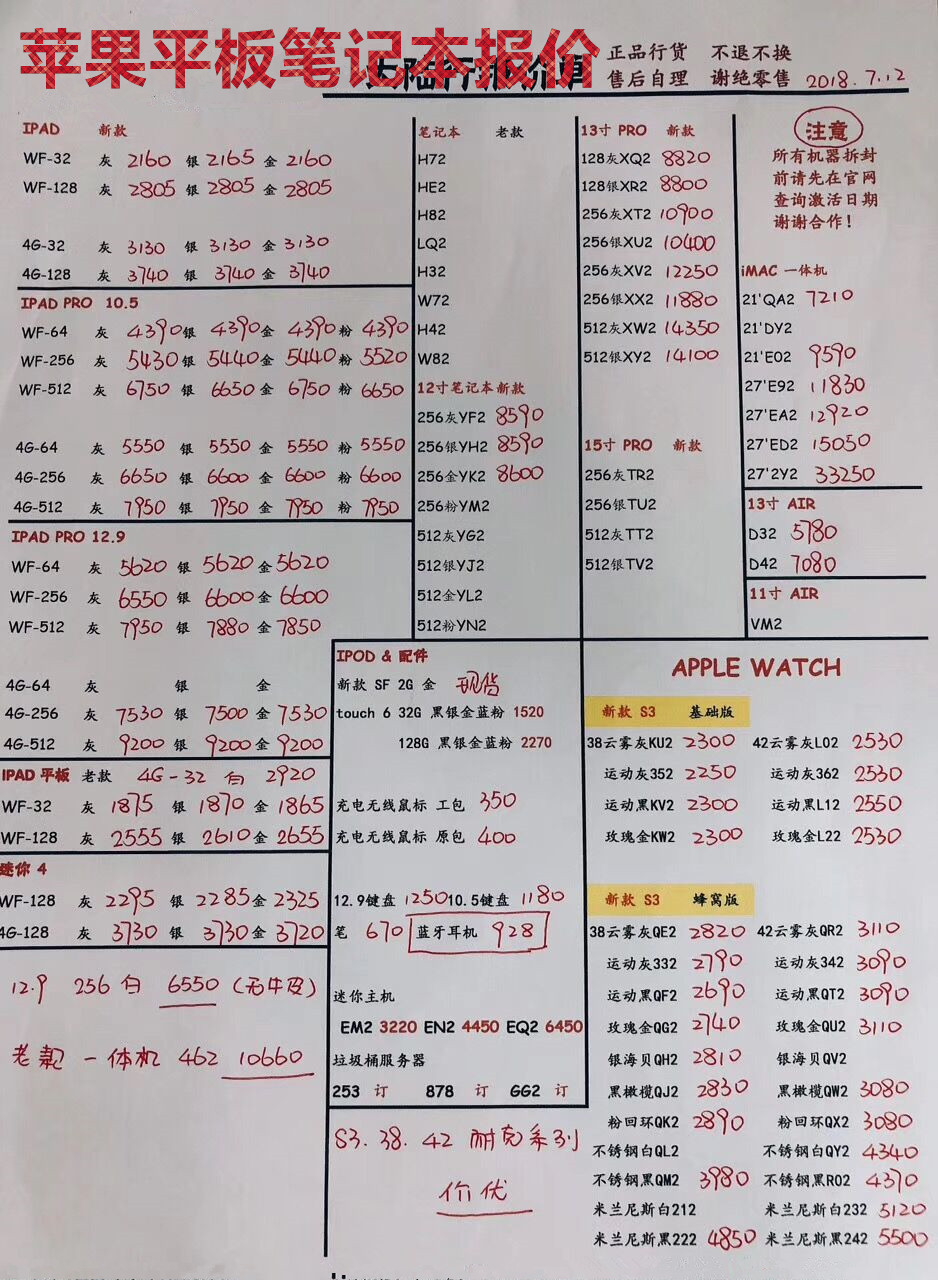 苹果平板笔记本报价
大陆行报价单
正品行货 不退不换
售后自理 谢绝零售 2018.7.12
IPAD 新款
WF-32 灰 2160 银 2165 金 2160
WF-128 灰 2805 银 2805 金 2805
4G-32 灰 3130 银 3130 金 3130
4G-128 灰 3740 银 3740 金 3740
IPAD PRO 10.5
WF-64 灰 4390 银 4390 金 4390 粉 4390
WF-256 灰 5430 银 5440 金 5440 粉 5520
WF-512 灰 6750 银 6650 金 6750 粉 6650
4G-64 灰 5550 银 5550 金 5550 粉 5550
4G-256 灰 6650 银 6600 金 6600 粉 6600
4G-512 灰 7950 银 7950 金 7950 粉 7950
IPAD PRO 12.9
WF-64 灰 5620 银 5620 金 5620
WF-256 灰 6550 银 6600 金 6600
WF-512 灰 7950 银 7880 金 7850
4G-64 灰 银 金
4G-256 灰 7530 银 7500 金 7530
4G-512 灰 9200 银 9200 金 9200
IPAD 平板 老款 4G-32 白 2920
WF-32 灰 1875 银 1870 金 1865
WF-128 灰 2555 银 2610 金 2655
迷你 4
WF-128 灰 2295 银 2285 金 2325
4G-128 灰 3730 银 3730 金 3720
12.9 256 白 6550 (无牛皮)
老款 一体机 462 10660
笔记本 老款
H72
HE2
H82
LQ2
H32
W72
H42
W82
12寸笔记本新款
256灰YF2 8590
256银YH2 8590
256金YK2 8600
256粉YM2
512灰YG2
512银YJ2
512金YL2
512粉YN2
13寸 PRO 新款
128灰XQ2 8820
128银XR2 8800
256灰XT2 10900
256银XU2 10400
256灰XV2 12250
256银XX2 11880
512灰XW2 14350
512银XY2 14100
15寸 PRO 新款
256灰TR2
256银TU2
512灰TT2
512银TV2
注意
所有机器拆封
前请先在官网
查询激活日期
谢谢合作！
iMAC 一体机
21'QA2 7210
21'DY2
21'E02 9590
27'E92 11830
27'EA2 12920
27'ED2 15050
27'2Y2 33250
13寸 AIR
D32 5780
D42 7080
11寸 AIR
VM2
IPOD & 配件
新款 SF 2G 金 现货
touch 6 32G 黑银金蓝粉 1520
128G 黑银金蓝粉 2270
充电无线鼠标 工包 350
充电无线鼠标 原包 400
12.9键盘 1250 10.5键盘 1180
笔 670 蓝牙耳机 928
迷你主机
EM2 3220 EN2 4450 EQ2 6450
垃圾桶服务器
253 订 878 订 GG2 订
S3. 38. 42 耐克系列
价优
APPLE WATCH
新款 S3 基础版
38云雾灰KU2 2300 42云雾灰L02 2530
运动灰352 2250 运动灰362 2530
运动黑KV2 2300 运动黑L12 2550
玫瑰金KW2 2300 玫瑰金L22 2530
新款 S3 蜂窝版
38云雾灰QE2 2820 42云雾灰QR2 3110
运动灰332 2790 运动灰342 3090
运动黑QF2 2690 运动黑QT2 3090
玫瑰金QG2 2740 玫瑰金QU2 3110
银海贝QH2 2810 银海贝QV2
黑橄榄QJ2 2830 黑橄榄QW2 3080
粉回环QK2 2890 粉回环QX2 3080
不锈钢白QL2 不锈钢白QY2 4340
不锈钢黑QM2 3980 不锈钢黑R02 4370
米兰尼斯白212 米兰尼斯白232 5120
米兰尼斯黑222 4850 米兰尼斯黑242 5500